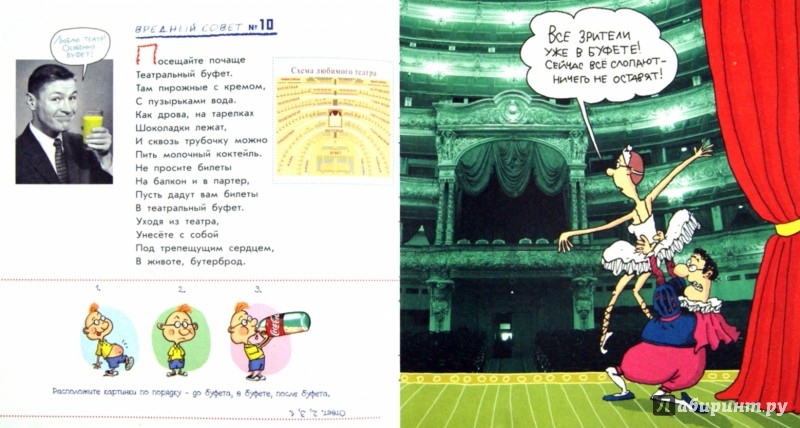 ВРЕДНЫЙ СОВЕТ № 10
ЛЮБЛЮ ТЕАТР!
ОСОБЕННО
БУФЕТ!
Посещайте почаще
Театральный буфет.
Там пирожные с кремом,
С пузырьками вода.
Как дрова, на тарелках
Шоколадки лежат,
И сквозь трубочку можно
Пить молочный коктейль.
Не просите билеты
На балкон и в партер,
Пусть дадут вам билеты
В театральный буфет.
Уходя из театра,
Унесёте с собой
Под трепещущим сердцем,
В животе, бутерброд.
Схема любимого театра
1.
2.
3.
Расположите картинки по порядку - до буфета, в буфете, после буфета.
Ответ: 2, 3, 1.
ВСЕ ЗРИТЕЛИ
УЖЕ В БУФЕТЕ!
СЕЙЧАС ВСЁ СЛОПАЮТ-
НИЧЕГО НЕ ОСТАВЯТ!
Лабиринт.ру